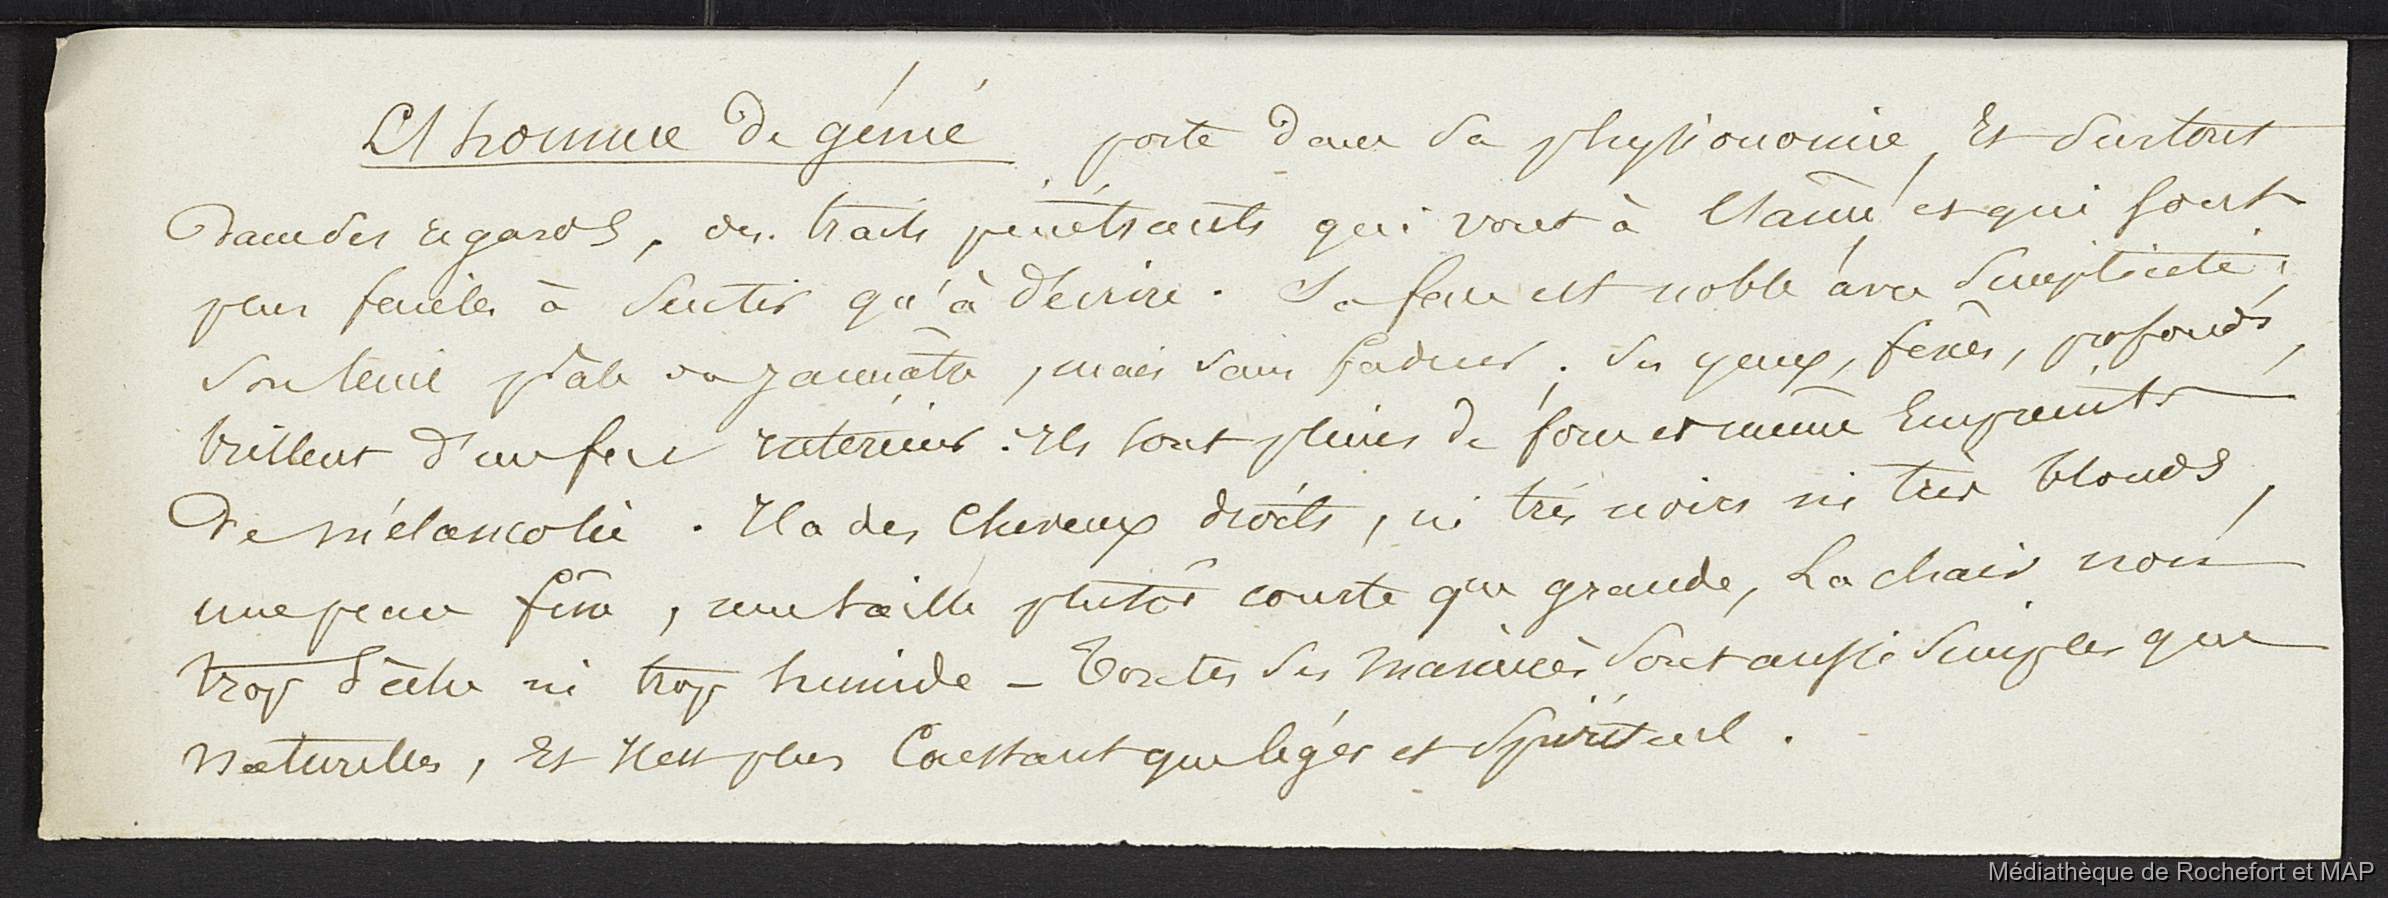 L'homme de génie porte dans sa physionomie, et surtout
dans ses regards, des traits pénétrants qui vont à l'âme, et qui sont
plus faciles à sentir qu'à décrire. Sa face est noble avec simplicité;
son teint pâle ou jaunâtre, mais sans fadeur; ses yeux, fixes, profonds,
brillent d'un feu intérieur. Ils sont pleins de force et même empreints
de mélancolie. Il a des cheveux droits, ni très noirs ni très blonds,
une peau fine, une taille plutôt courte que grande, la chair non
trop sèche ni trop humide – Toutes ses manières sont aussi simples que
naturelles, et il est plus constant que léger et spirituel.
Médiathèque de Rochefort et MAP